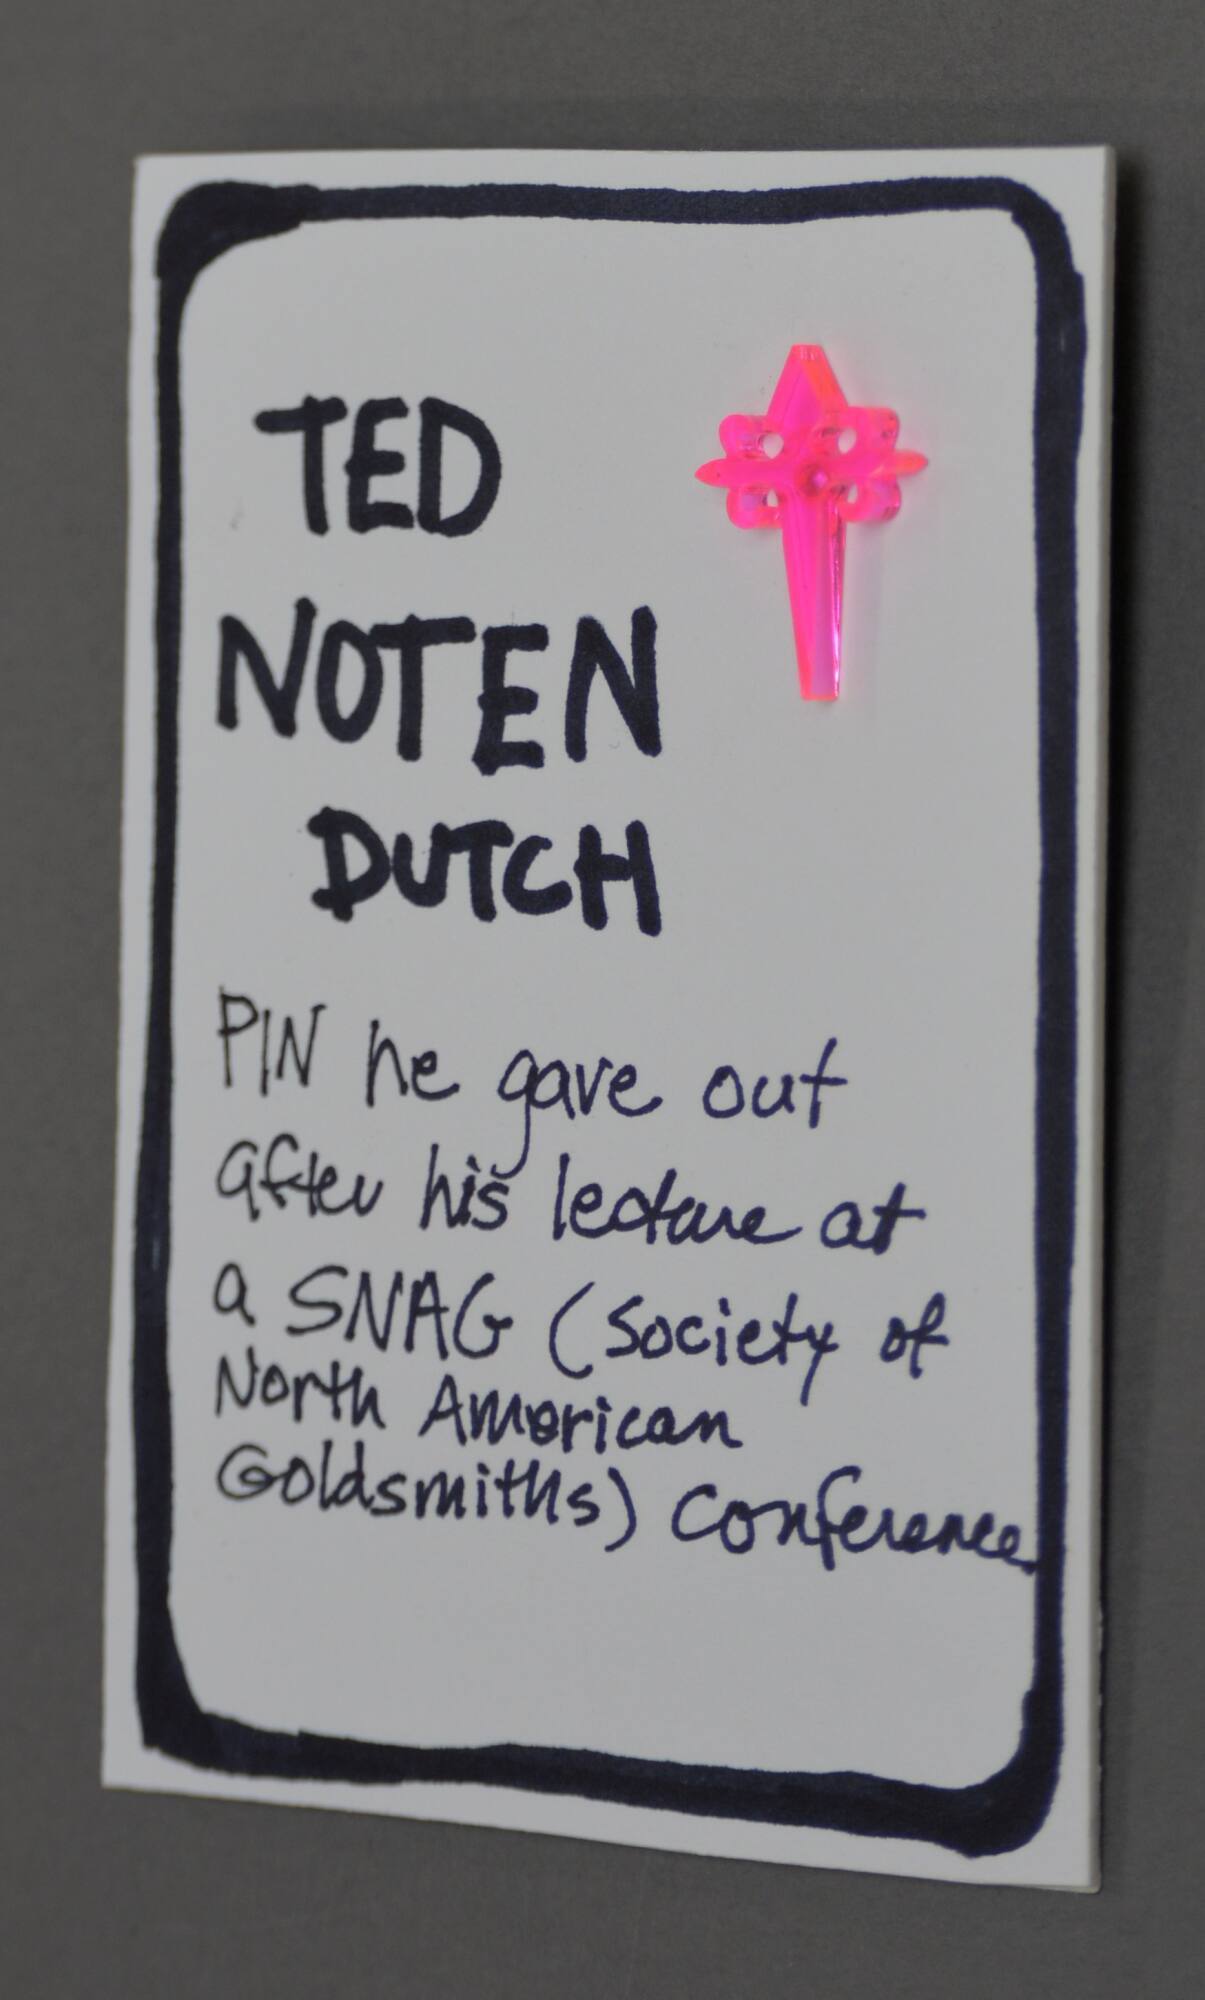 TED
NOTEN
DUTCH
PIN he gave out
after his lecture at
a SNAG (Society of
North American
Goldsmiths) conference